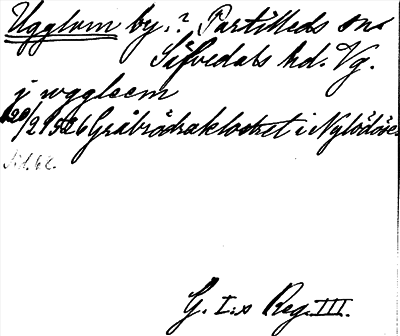 Ugglum by.? Partilleds sn
Säfvedals hd. Vg.
j wggleem
20/2 1526 Gråbrödraklostret i Nylödöse
G. I:s Reg. III.